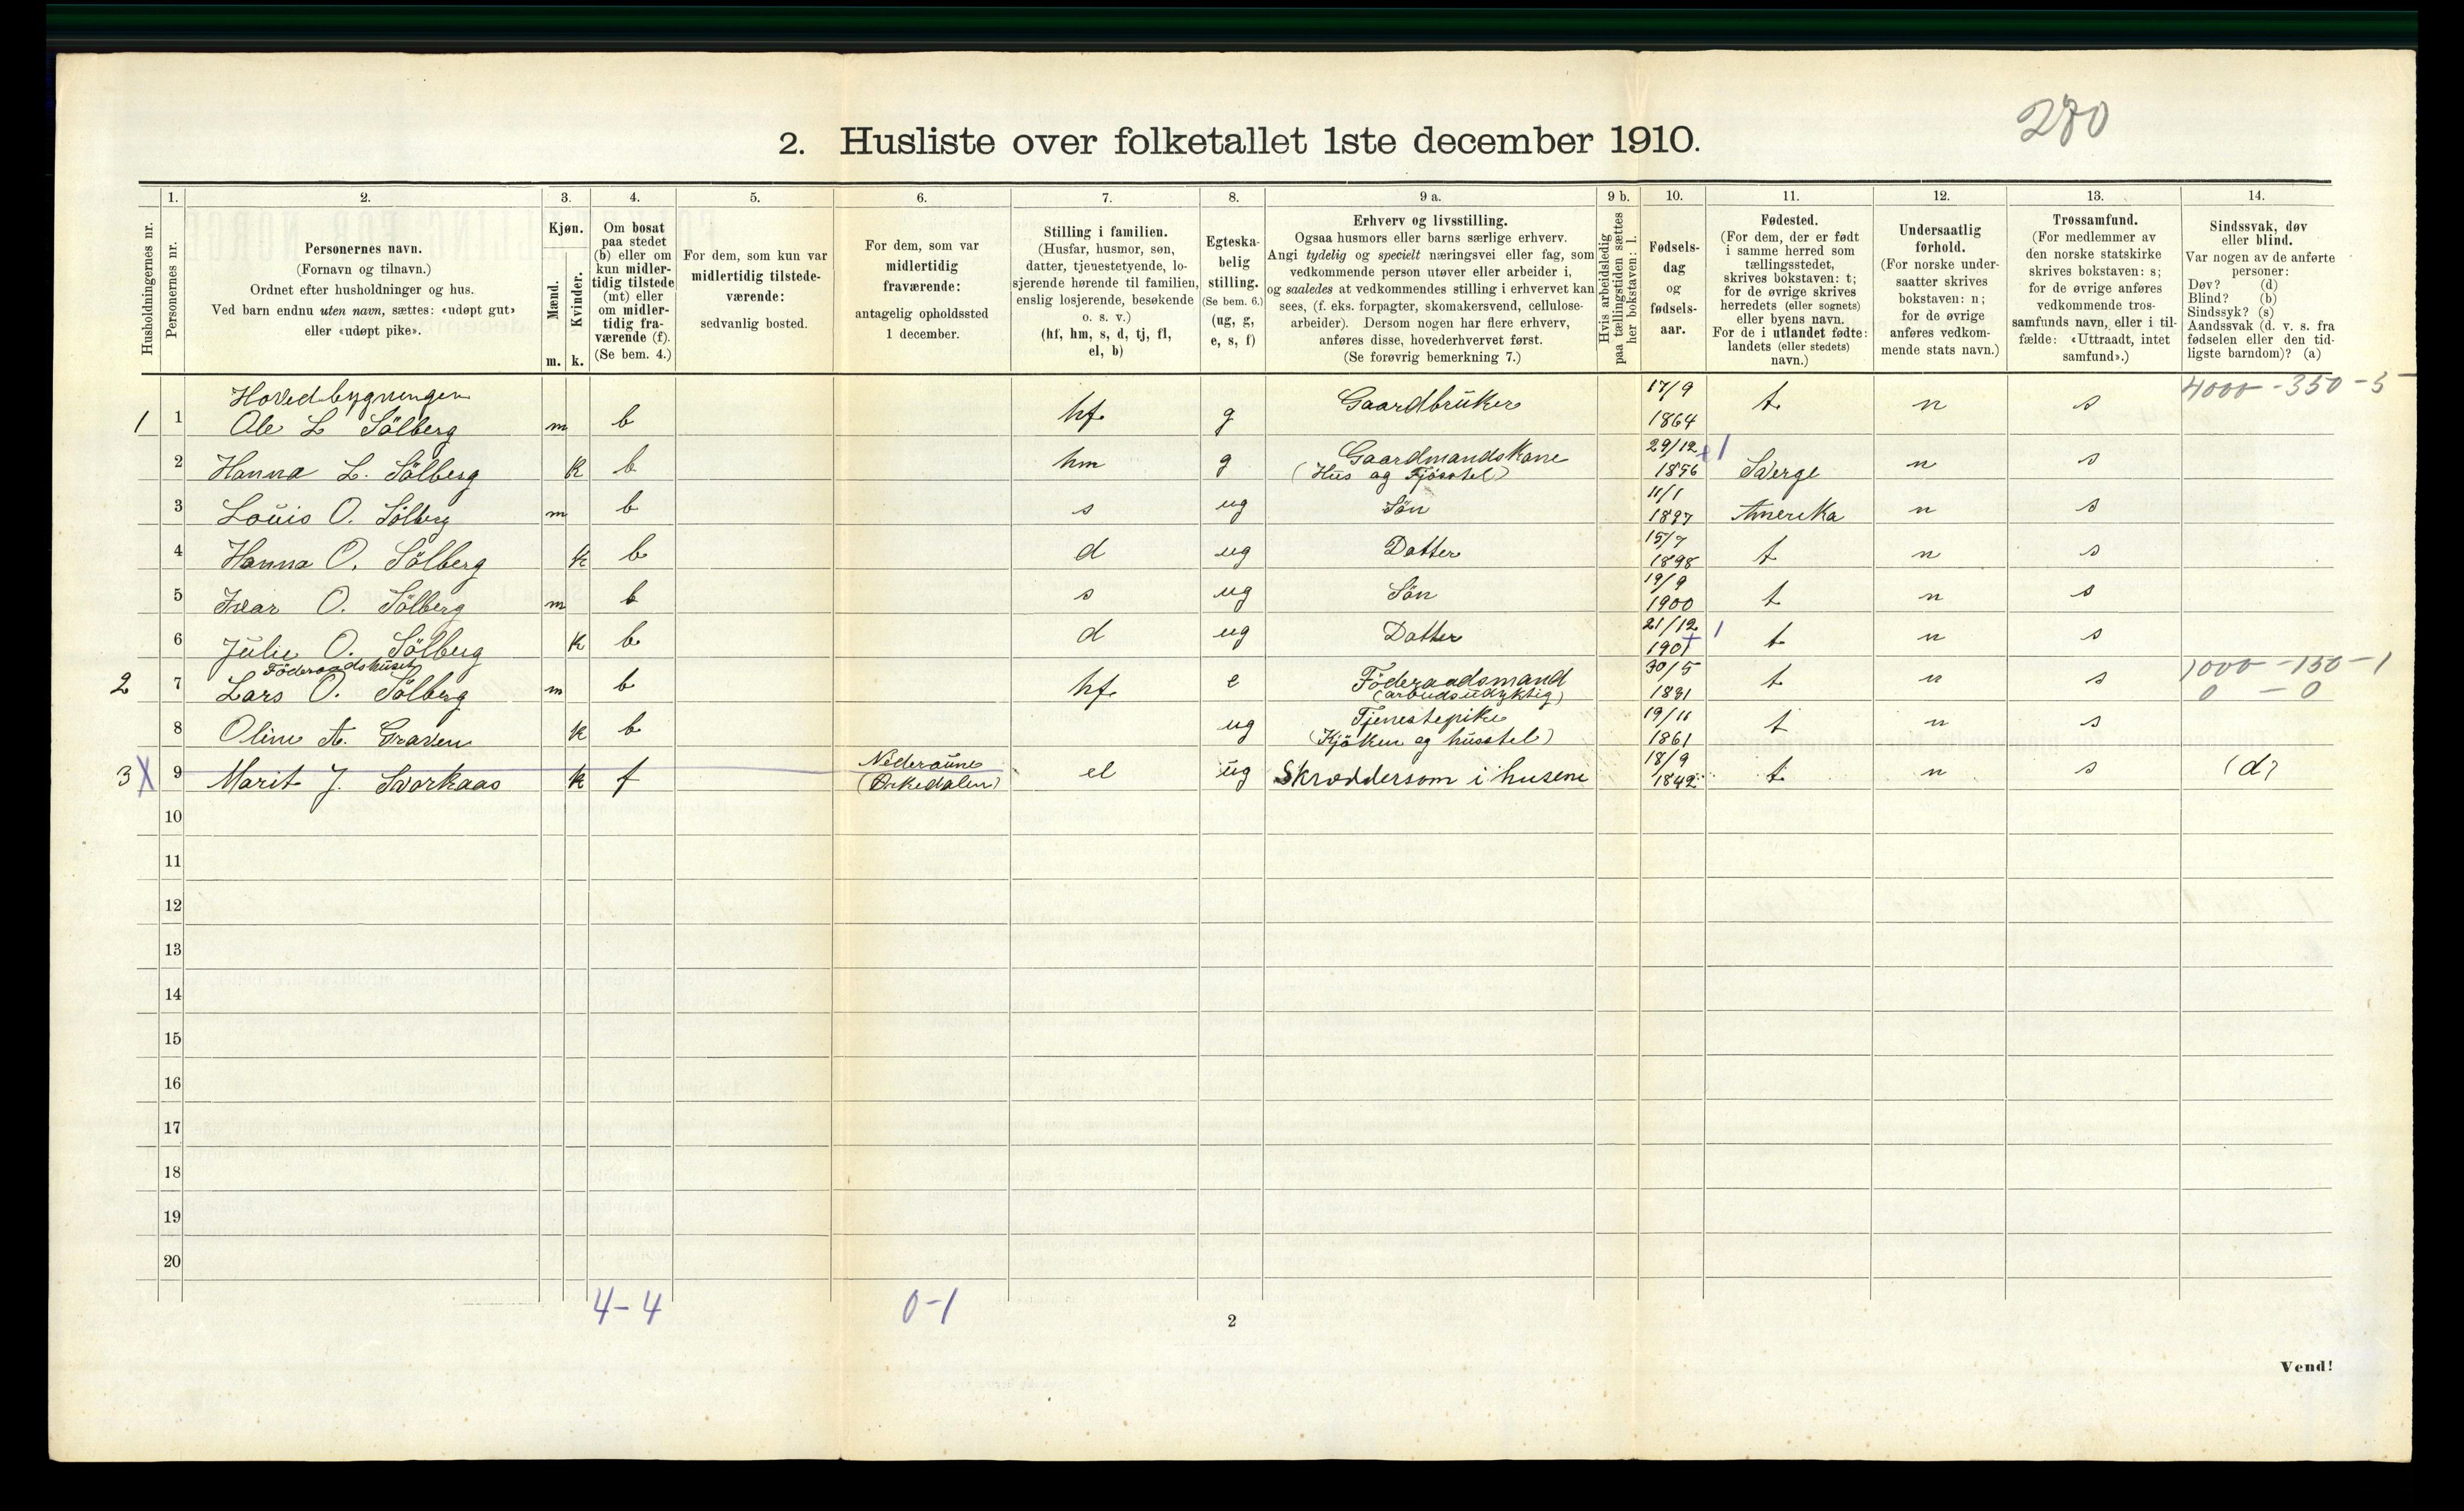 280
2. Husliste over folketallet 1ste december 1910.
Husholdningernes nr.
1.
Personernes nr.
2.
Personernes navn.
(Fornavn og tilnavn.)
Ordnet efter husholdninger og hus.
Ved barn endnu uten navn, sættes: «udøpt gut»
eller «udøpt pike».
3.
Kjøn.
Mænd.
m.
Kvinder.
k.
4.
Om bosat
paa stedet
(b) eller om
kun midler-
tidig tilstede
(mt) eller
om midler-
tidig fra-
værende (f).
(Se bem. 4.)
5.
For dem, som kun var
midlertidig tilstede-
værende:
sedvanlig bosted.
6.
For dem, som var
midlertidig
fraværende:
antagelig opholdssted
1 december.
7.
Stilling i familien.
(Husfar, husmor, søn,
datter, tjenestetyende, lo-
sjerende hørende til familien,
enslig losjerende, besøkende
o. s. v.)
(hf, hm, s, d, tj, fl,
el, b)
8.
Egteska-
belig
stilling.
(Se bem. 6.)
(ug, g,
e, s, f)
9 a.
Erhverv og livsstilling.
Ogsaa husmors eller barns særlige erhverv.
Angi tydelig og specielt næringsvei eller fag, som
vedkommende person utøver eller arbeider i,
og saaledes at vedkommendes stilling i erhvervet kan
sees, (f. eks. forpagter, skomakersvend, cellulose-
arbeider). Dersom nogen har flere erhverv,
anføres disse, hovederhvervet først.
(Se forøvrig bemerkning 7.)
9 b.
Hvis arbeidsledig
paa tællingstiden sættes
her bokstaven: l.
10.
Fødsels-
dag
og
fødsels-
aar.
11.
Fødested.
(For dem, der er født
i samme herred som
tællingsstedet,
skrives bokstaven: t;
for de øvrige skrives
herredets (eller sognets)
eller byens navn.
For de i utlandet fødte:
landets (eller stedets)
navn.)
12.
Undersaatlig
forhold.
(For norske under-
saatter skrives
bokstaven: n;
for de øvrige
anføres vedkom-
mende stats navn.)
13.
Trossamfund.
(For medlemmer av
den norske statskirke
skrives bokstaven: s;
for de øvrige anføres
vedkommende tros-
samfunds navn, eller i til-
fælde: «Uttraadt, intet
samfund».)
14.
Sindssvak, døv
eller blind.
Var nogen av de anførte
personer:
Døv? (d)
Blind? (b)
Sindssyk? (s)
Aandssvak (d. v. s. fra
fødselen eller den tid-
ligste barndom)? (a)
Hovedbygningen
1 1 Ole L Sölberg m b hf g Gaardbruker 17/9 1864 t n s 4000-350-5
2 Hanna L. Sölberg k b hm g Gaardmandskone (Hus og Fjösstel) 29/12 1856 1 Sverge n s
3 Louis O. Sölberg m b s ug Sön 11/1 1897 Amerika n s
4 Hanna O. Sölberg k b d ug Datter 15/7 1898 t n s
5 Ivar O. Sölberg m b s ug Sön 19/9 1900 t n s
6 Julie O. Sölberg k b d ug Datter 21/12 1901 1 t n s
Föderaadshuset
2 7 Lars O. Sölberg m b hf e Föderaadsmand (arbeidsudyktig) 30/5 1831 t n s 1000-150-1
0 - 0
8 Oline A. Graven k b ug Tjenestepike (Kjöken og husstel) 19/11 1861 t n s
3 X 9 Marit J. Svorkaas k f Nederaune (Orkedalen) el ug Skræddersom i husene 18/9 1842 t n s (d)
10
11
12
13
14
15
16
17
18
19
20
4-4 0-1
2
Vend!